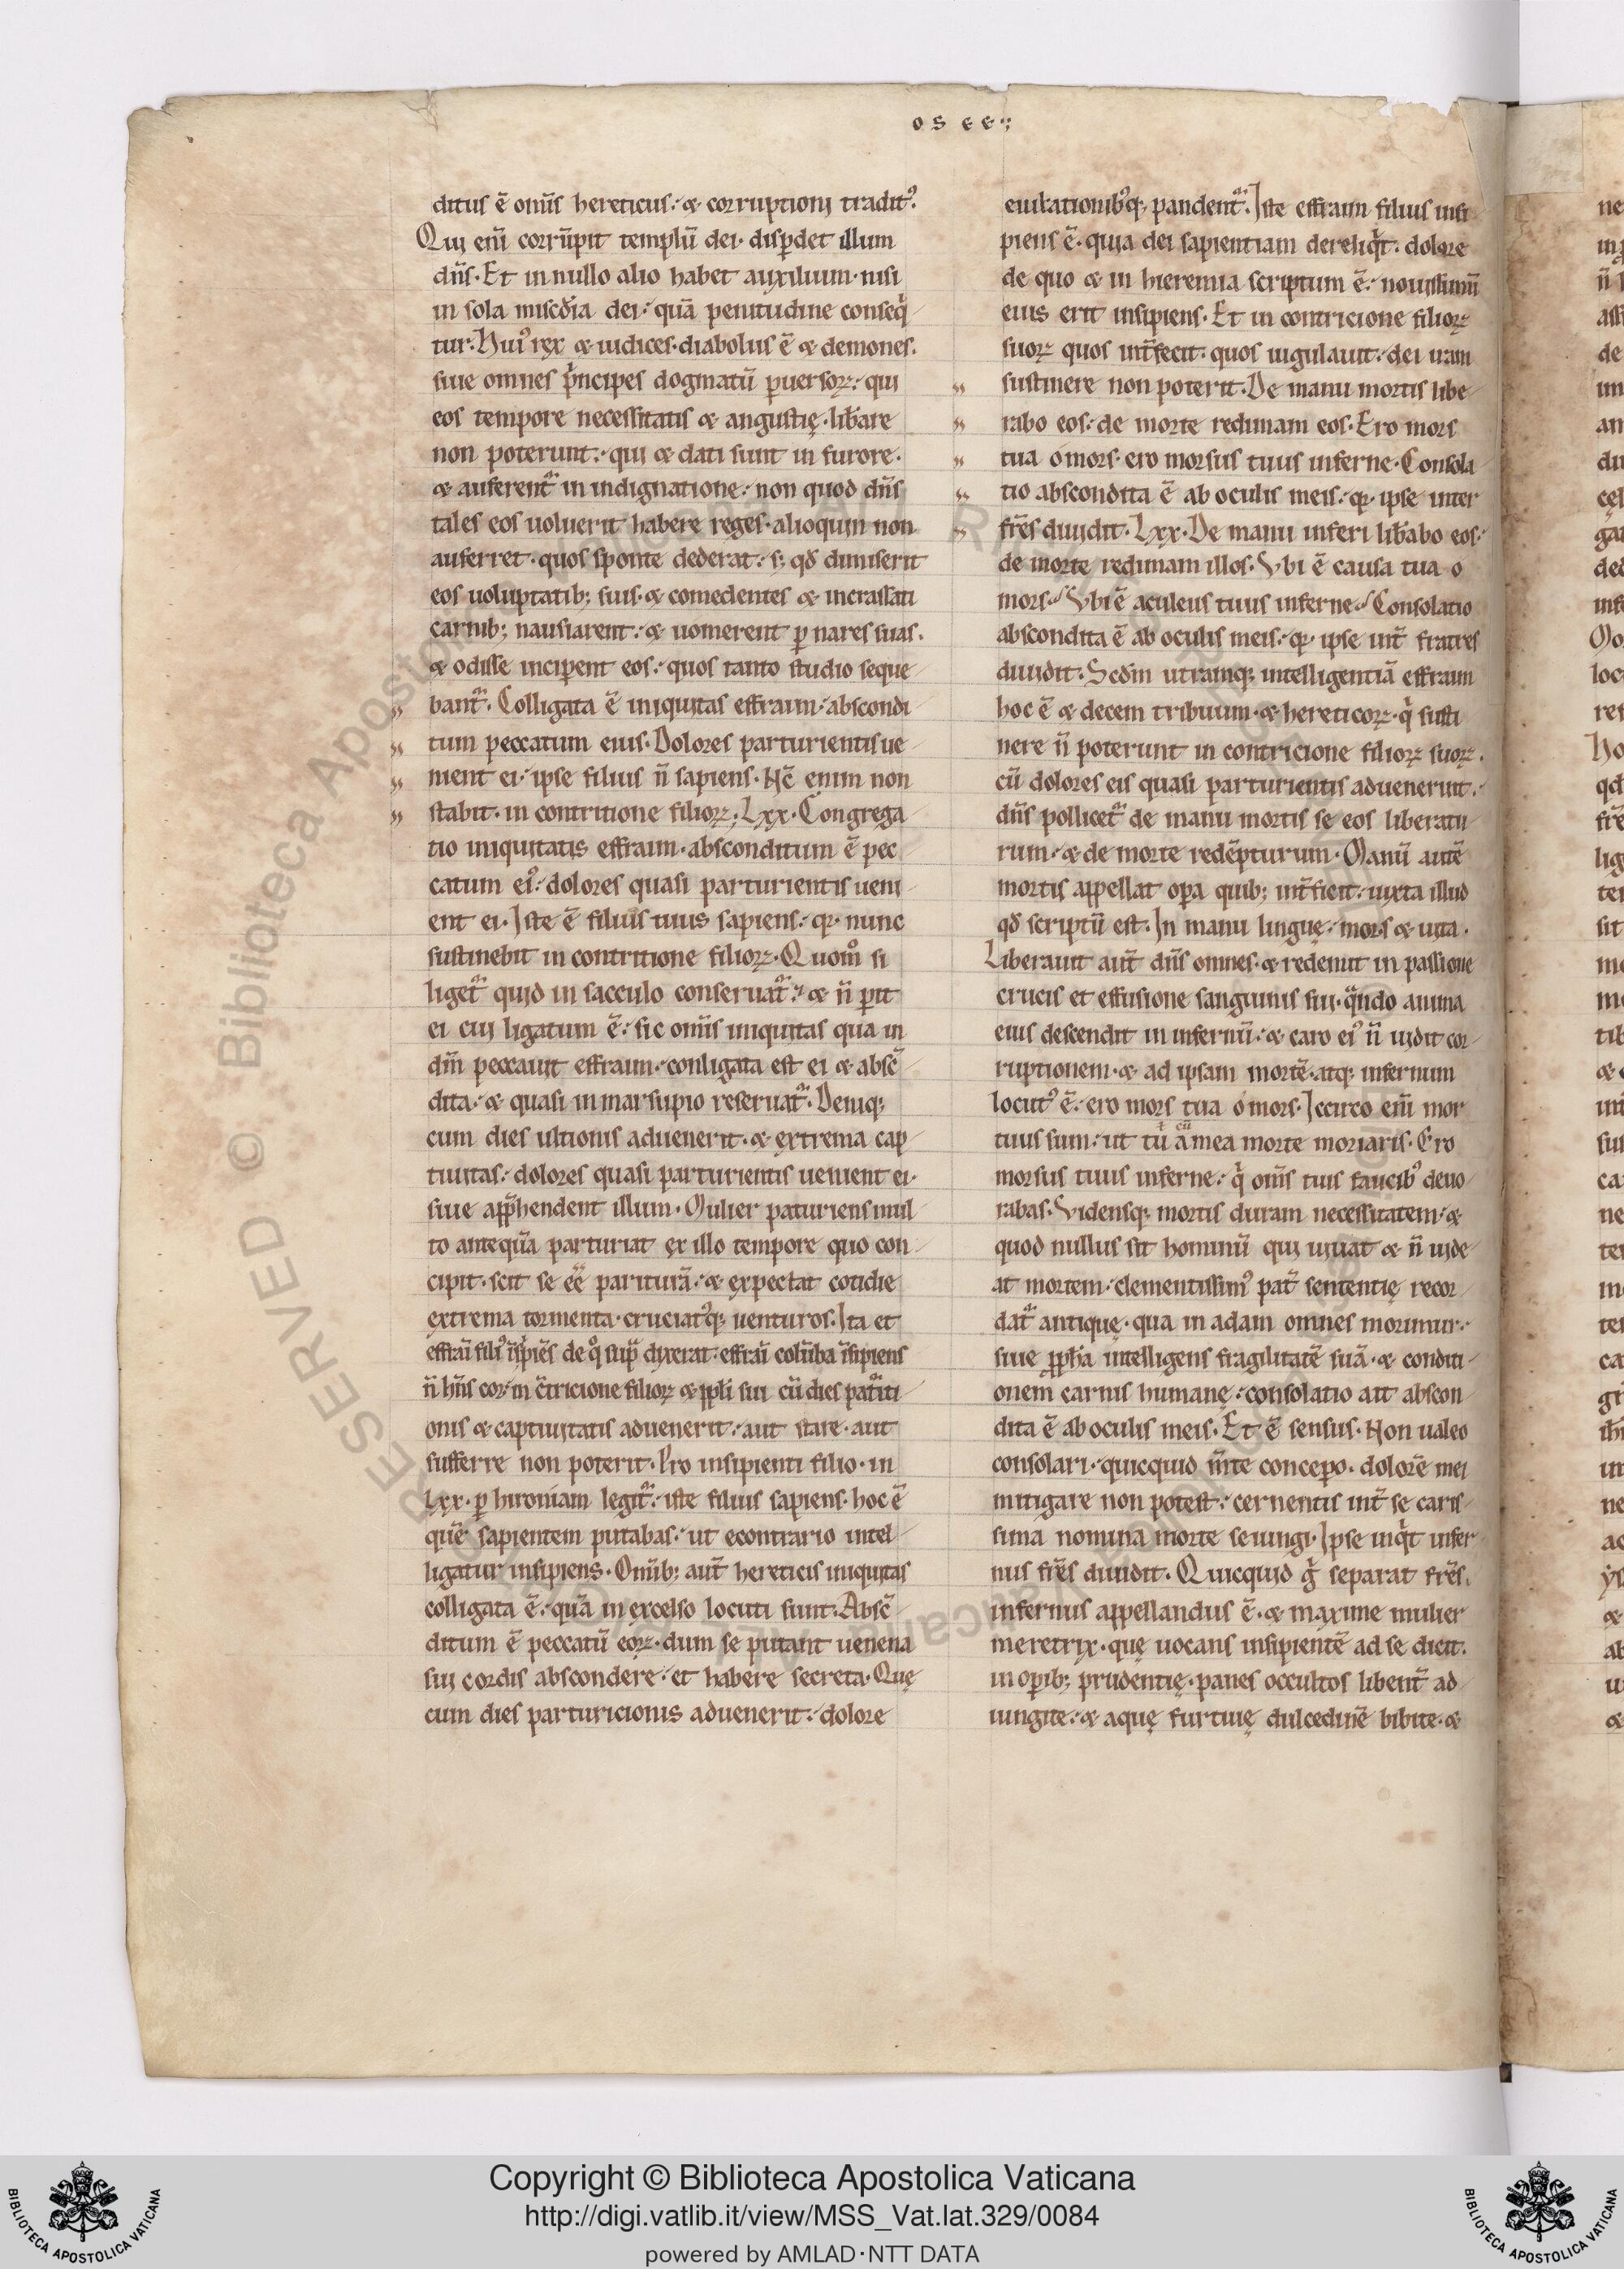 osee:,
ditus ē om̄s hereticus: & corruptioni tradit᷒.
Qui eni̅ corru̅pit templu̅ dei. disꝑdet illum
dn̅s. Et in nullo alio habet auxilium. nisi
in sola misc̅dia dei: qua̅ penitudine conseqͥ
tur. Hui᷒ rex & iudices. diabolus ē & demones.
siue omnes pͥncipes dogmatu̅ ꝑuersoꝝ: qui
eos tempore necessitatis & angustię. lib̅are
non poterunt: qui & dati sunt in furore.
& auferent᷑ in indignatione: non quod dn̅s
tales eos uoluerit habere reges. alioquin non
auferret. quos sponte dederat: s; qd̅ dimiserit
eos uoluptatib; suis. & comedentes & incrassati
carnib; nausiarent: & uomerent ꝑ nares suas.
& odisse inciꝑent eos: quos tanto studio seque
bant᷑. Colligata ē iniquitas effraim: abscondi
tum peccatum eius. Dolores parturientis ue
nient ei: ipse filius n̅ sapiens. Nc̅ enim non
stabit. in contritione filioꝝ; Lxx. Congrega
tio iniquitatis effraim. absconditum ē pec
catum ei᷒: dolores quasi parturientis ueni
ent ei. Iste ē filius tuus sapiens: qꝛ. nunc
sustinebit in contritione filioꝝ. Quom̊ si
liget᷑ quid in sacculo conseruat᷑: & n̅ ꝑit
ei cui ligatum ē: sic om̄is iniquitas qua in
dm̅ peccauit effraim: conligata est ei & absc̅
dita: & quasi in marsupio reseruat᷑. Deniq;
cum dies ultionis aduenerit. & extrema cap
tiuitas: dolores quasi parturientis uenient ei.
siue app̅hendent illum. Mulier paturiens mul
to antequa̅ parturiat ex illo tempore quo con
cipit. scit se ee̅ paritura̅: & expectat cotidie
extrema tormenta. cruciat᷒q; uenturos. Ita et
effrai̅ fili᷒ i̅sipie̅s de qͦ supͣ dixerat. effrai̅ colu̅ba i̅sipiens
n̅ hn̅s cor: in c̅tricione filioꝝ & ppl̅i sui cu̅ dies part᷑iti
onis & captiuitatis aduenerit: aut stare. aut
sufferre non poterit. Pro insipienti filio. in
Lxx. ꝑ hironiam legit᷑: iste filius sapiens. hoc ē
que̅ sapientem putabas: ut econtrario intel
ligatur insipiens. Omib; aut̅ hereticis iniquitas
colligata ē: qua̅ in excelso locuti sunt. Absc̅
ditum ē peccatu̅ eoꝝ. dum se putant uenena
sui cordis abscondere: et habere secreta. Quę
cum dies parturicionis aduenerit: dolore
eiulationib᷒q; pandent᷑. Iste effraim filius insi
piens ē. quia dei sapientiam dereliqͥt. dolore
de quo & in hieremia scriptum ē: nouissimu̅
eius erit insipiens. Et in contricione filioꝝ
suoꝝ quos int̅fecit. quos iugulauit: dei iram
sustinere non poterit. De manu mortis libe
rabo eos: de morte redimam eos. Ero mors
tua o mors. ero morsus tuus inferne. Consola
tio abscondita ē ab oculis meis: qꝛ. ipse inter
fr̅es diuidit. Lxx. De manu inferi lib̅abo eos:
de morte redimam illos. Vbi ē causa tua o
mors? Vbi ē aculeus tuus inferne? Consolatio
abscondita ē ab oculis meis: qꝛ. ipse int̅ fratres
diuidit. Sed̅m utramq; intelligentia̅ effraim
hoc ē & decem tribuum. & hereticoꝝ. qͥ susti
nere n̅ poterunt in contricione filioꝝ suoꝝ.
cu̅ dolores eis quasi parturientis aduenerint:
dn̅s pollicet᷑ de manu mortis se eos liberatu
rum: & de morte rede̅pturum. Manu̅ aute̅
mortis appellat oꝑa quib; int̅ficit: iuxta illud
qd̅ scriptu̅ est. In manu linguę: mors & uita.
Liberauit aut̅ dn̅s omnes. & redemit in passione
crucis et effusione sanguinis sui. qͣndo anima
eius descendit in infernu̅: & caro ei᷒ n̅ uidit cor
ruptionem. & ad ipsam morte̅. atq; infernum
locut᷒ ē: ero mors tua o mors. Iccirco eni̅ mor
tuus sum: ut tu a̅ mea morte moriaris. Ero
morsus tuus inferne: qͥ om̄s tuis faucib᷒ deuo
rabas. Vidensq; mortis duram necessitatem: &
quod nullus sit hominu̅ qui uiuat & n̅ uide
at mortem: clementissim᷒ pat̅ sententię recor
dat᷑ antiquę. qua in adam omnes morimur:
siue pph̅a intelligens fragilitate̅ sua̅. & conditi
onem carnis humanę: consolatio ait abscon
dita ē ab oculis meis. Et ē sensus. Non ualeo
consolari. quicquid m̅te concepo. dolore̅ mei
mitigare non potest: cernentis int̅ se caris
sima nomina morte seiungi. Ipse inqͥt infer
nus fr̅es diuidit. Quicquid gͥ separat fr̅es.
infernus appellandus ē. & maxime mulier
meretrix. quę uocans insipiente̅ ad se dicit.
in oꝑib; prudentię. panes occultos libent̅ ad
iungite: & aquę furtiuę dulcedine̅ bibite. &
Copyright © Biblioteca Apostolica Vaticana
http://digi.vatlib.it/view/MSS_Vat.lat.329/0084
powered by AMLAD·NTT DATA